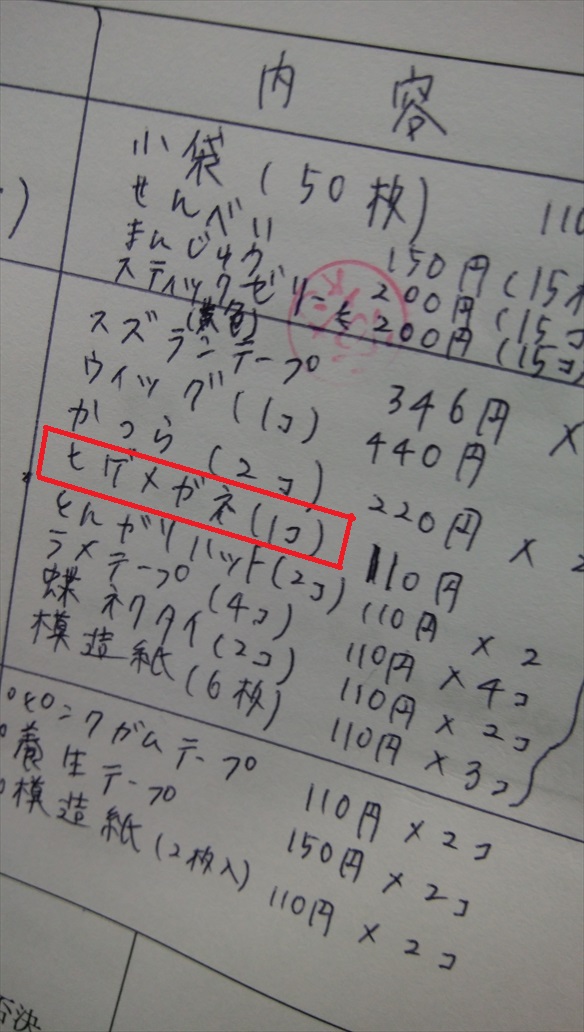 内容
小袋(50枚) 110
せんべい 150円(15枚
まんじゅう 200円(15コ
スティックゼリー 200円(15コ
(黄色)
スズランテープ 346円 ×
ウィッグ(1コ) 440円
かつら(2コ) 220円 × 2
ヒゲメガネ(1コ) 110円
とんがりハット(2コ) 110円 × 2
ラメテープ(4コ) 110円 × 4コ
蝶ネクタイ(2コ) 110円 × 2コ
模造紙(6枚) 110円 × 3コ
ガムテープ 110円 × 2コ
養生テープ 150円 × 2コ
模造紙(2枚入) 110円 × 2コ
否決